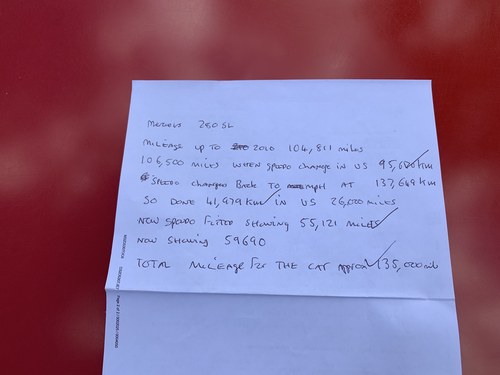 MERCEDES 280 SL
MILEAGE UP TO 2010 104,811 MILES
106,500 MILES WHEN SPEEDO CHANGE IN US KM
SPEEDO CHANGED BACK TO MPH AT 137,649 KM
SO DONE 41,979 KM IN US 26,000 MILES
NEW SPEEDO FITTED SHOWING 55,121 MILES
NOW SHOWING 59690
TOTAL MILEAGE FOR THE CAR APPROX 135,000